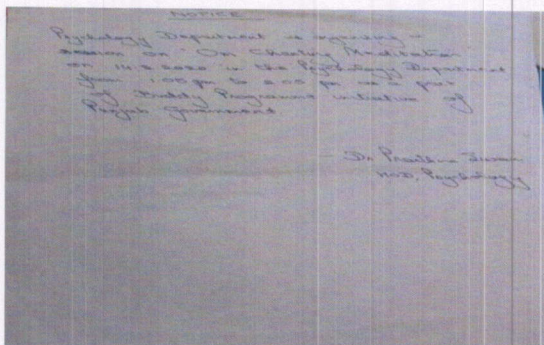 NOTICE
Psychology Department is organising
session on On Chanting Meditation
on 14.2.2020 in the Psychology Department
from 1.00 pm to 2.00 pm as a part
of Buddy Programme initiative of
Punjab Government
Dr
HOD, Psychology